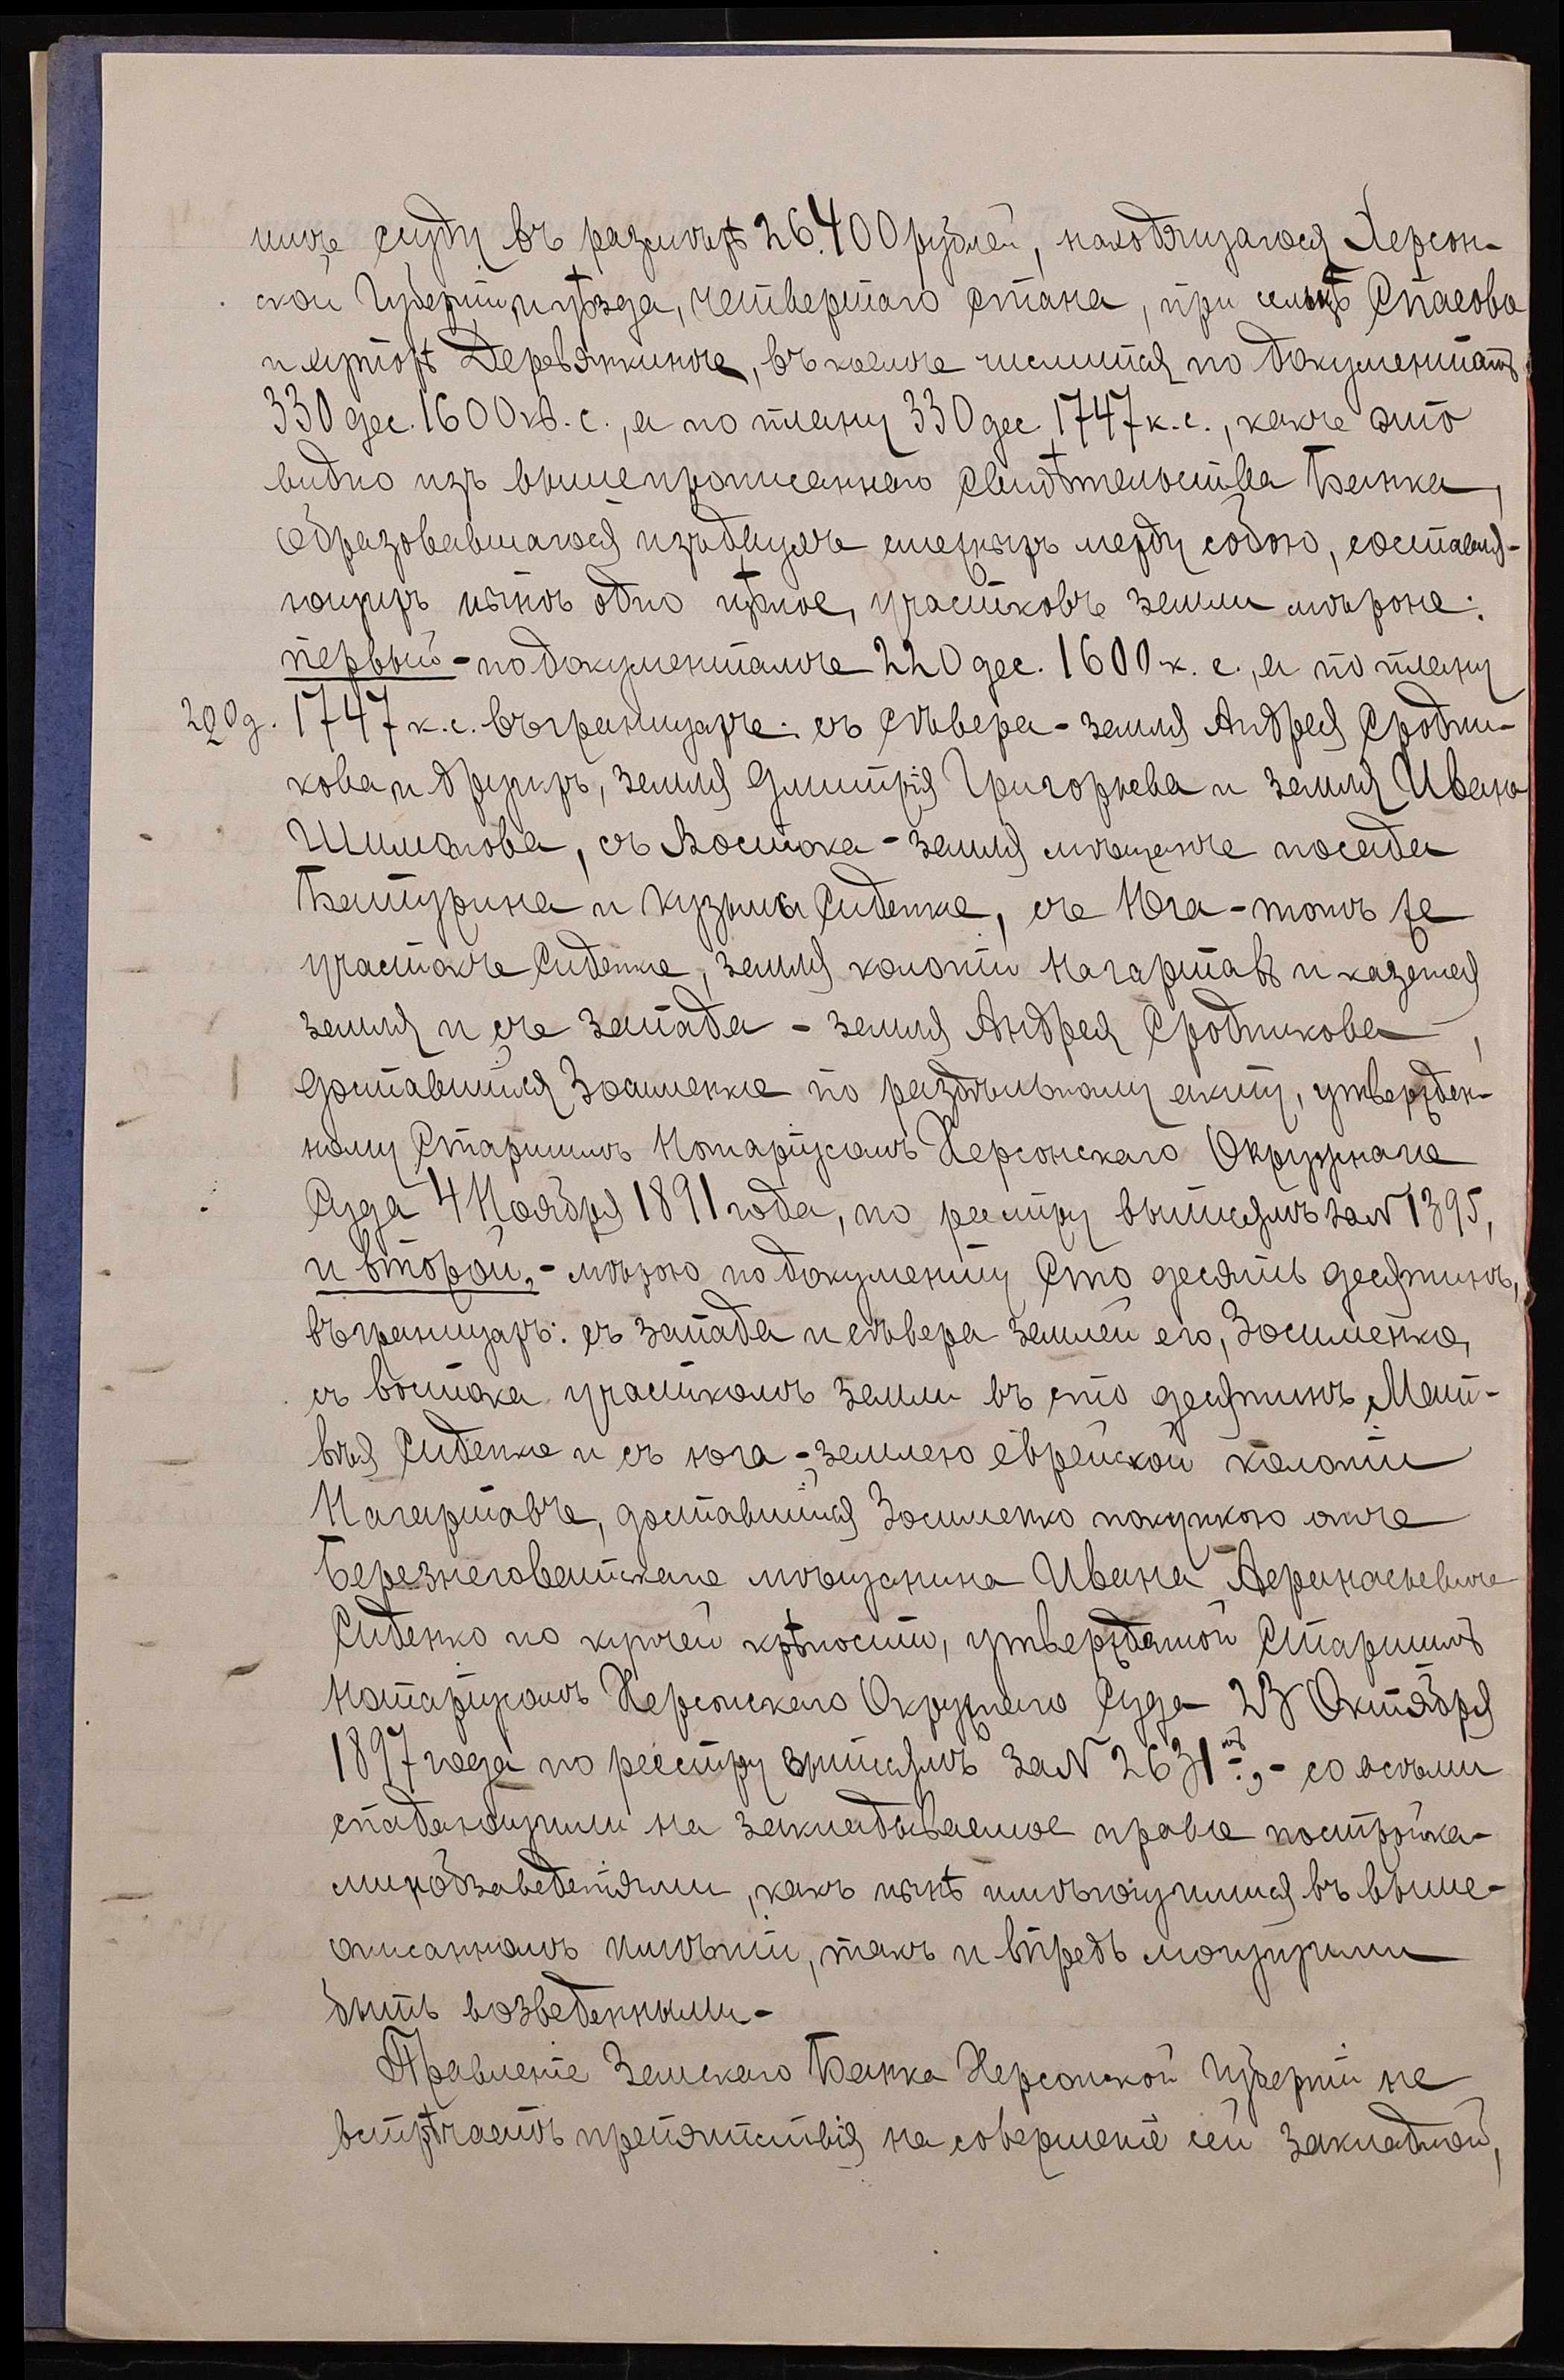 нимъ ссуду въ размѣрѣ 26.400 рублей, находящагося Херсон-
ской Губерніи и уѣзда, четвертаго стана, при сельцѣ Спасово
и хуторѣ Деревянкиномъ, въ коемъ числится по документамъ
330 дес. 1600 кв. с., а по плану 330 дес. 1747 к. с., какъ это
видно изъ вышепрописаннаго Свидѣтельства Банка,
образовавшагося изъ двухъ смежныхъ между собою, составля-
ющихъ нынѣ одно цѣлое, участковъ земли мѣрою:
первый - по документамъ 220 дес. 1600 к. с., а по плану
220 д. 1747 к. с. въ границахъ: съ Сѣвера - земля Андрея Сродни-
кова и другихъ, земля Дмитрія Григорьева и земля Ивана
Шиманова, съ Востока - земля мѣщанъ посада
Батурина и Кузьмы Сиденка, съ Юга - тотъ же
участокъ Сиденка, земля колоніи Нагартавъ и казенная
земля и съ Запада - земля Андрея Сродникова,
доставшійся Зосименкѣ по раздѣльному акту, утвержден-
ному Старшимъ Нотаріусомъ Херсонскаго Окружнаго
Суда 4 Ноября 1891 года, по реестру выписямъ за N 1395,
и второй, - мѣрою по документу Сто десять десятинъ,
въ границахъ: съ запада и сѣвера землей его, Зосименко,
съ востока участкомъ земли въ сто десятинъ Мат-
вѣя Сиденка и съ юга - землею еврейской колоніи
Нагартавъ, доставшійся Зосименко покупкою отъ
Березнеговатскаго мѣщанина Ивана Афанасьевича
Сиденко по купчей крѣпости, утвержденной Старшимъ
Нотаріусомъ Херсонскаго Окружнаго Суда 23 Октября
1897 года по реестру выписямъ за N 2631 мъ, - со всѣми
спадающими на закладываемое право постройка-
ми и обзаведеніями, какъ нынѣ имѣющимися въ выше-
описанномъ имѣніи, такъ и впредь могущими
быть возведенными. -
Правленіе Земскаго Банка Херсонской Губерніи не
встрѣчаетъ препятствія на совершеніе сей закладной,